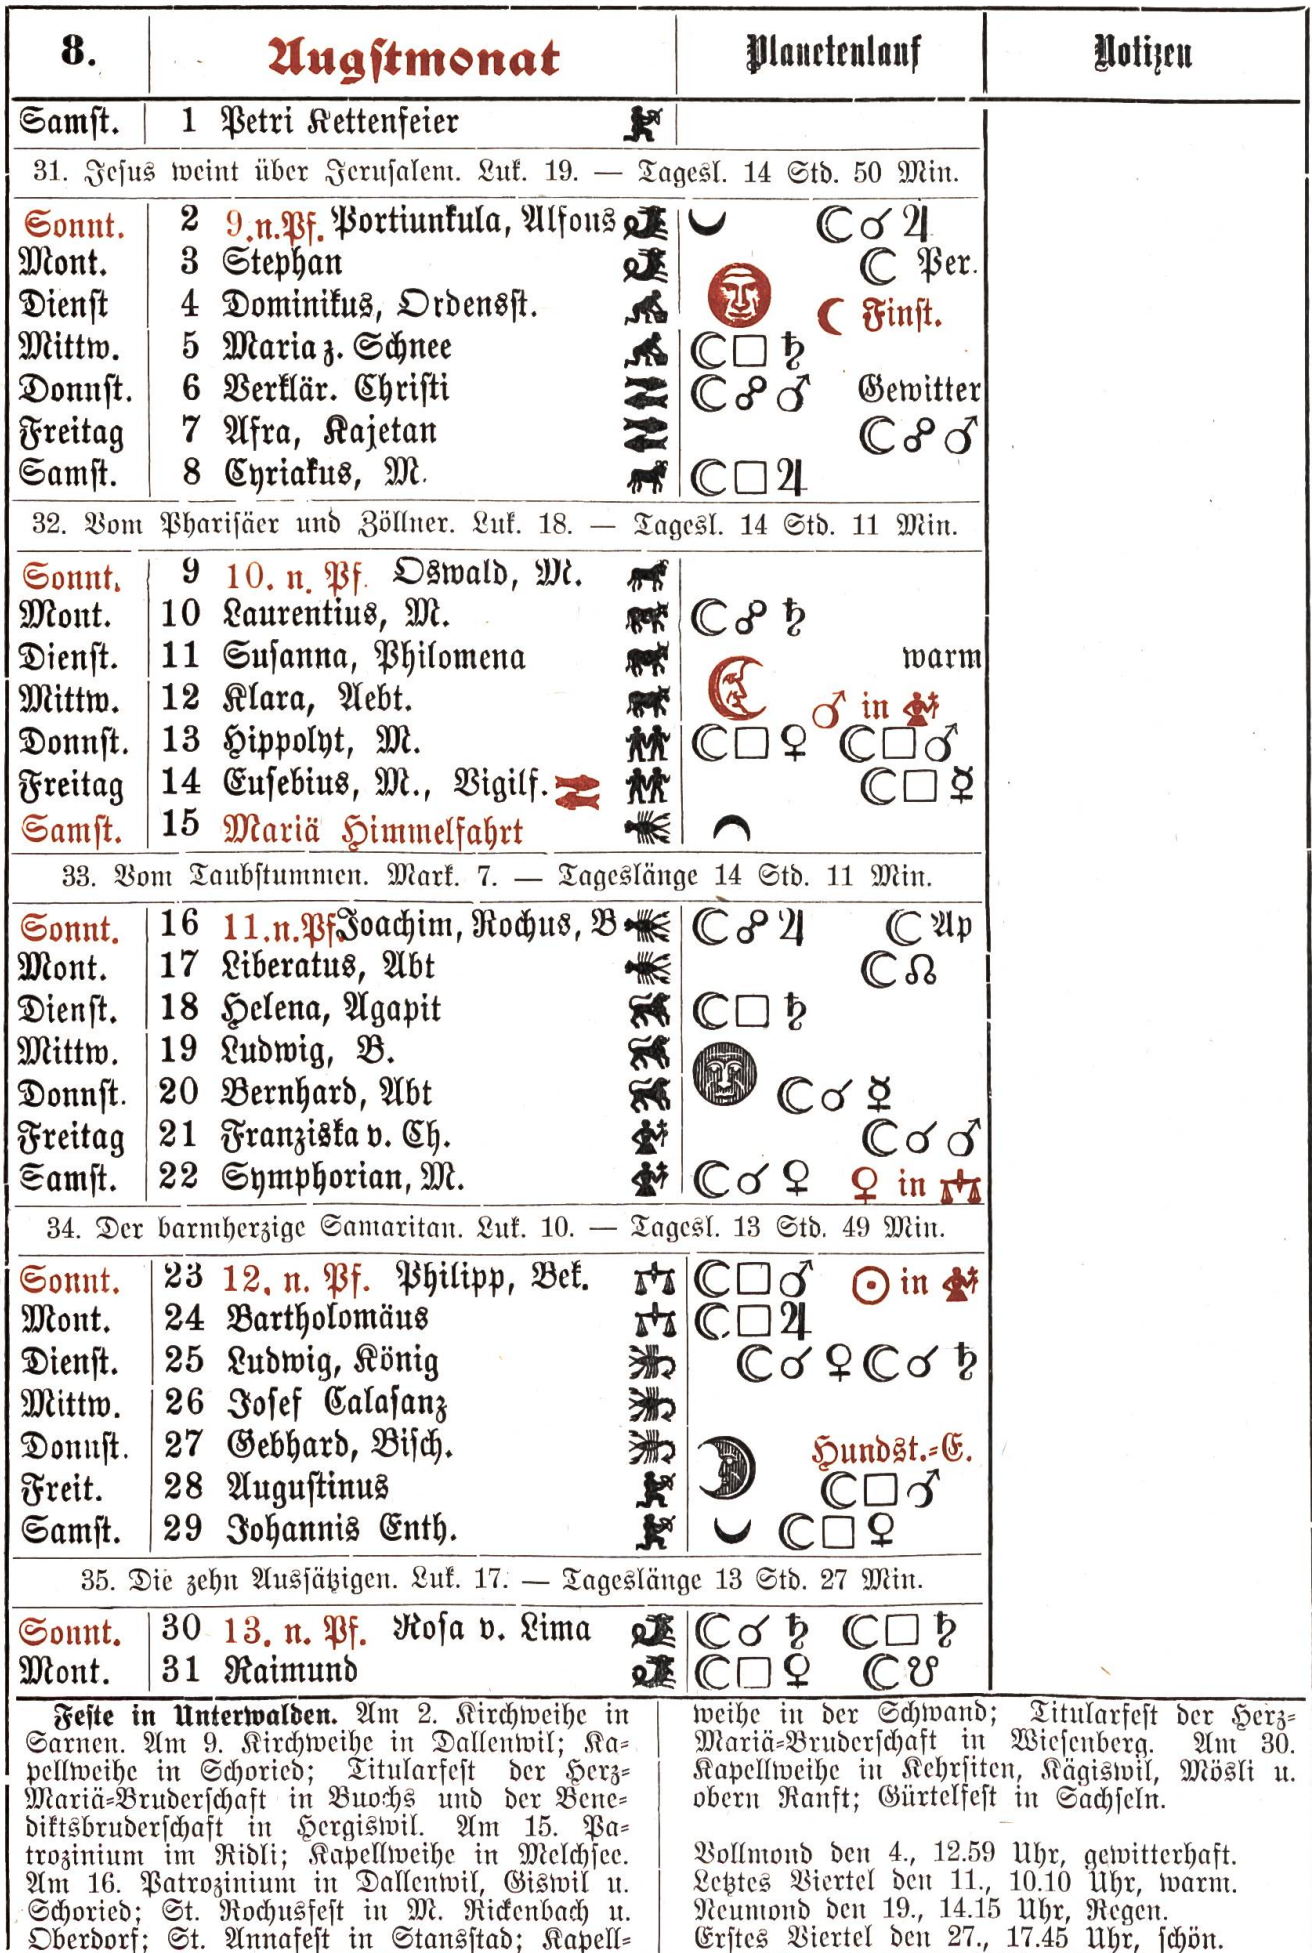 8. Augstmonat Planetenlauf Notizen
Samst. 1 Petri Kettenfeier
31. Jesus weint über Jerusalem. Luk. 19. — Tagesl. 14 Std. 50 Min.
Sonnt. 2 9.n.Pf. Portiunkula, Alfons ☾☌♃
Mont. 3 Stephan ☾ Per.
Dienst 4 Dominikus, Ordensst. ☾ Finst.
Mittw. 5 Maria z. Schnee ☾□♄
Donnst. 6 Verklär. Christi ☾☍♂ Gewitter
Freitag 7 Afra, Kajetan ☾☍♂
Samst. 8 Cyriakus, M. ☾□♃
32. Vom Pharisäer und Zöllner. Luk. 18. — Tagesl. 14 Std. 11 Min.
Sonnt. 9 10. n. Pf. Oswald, M.
Mont. 10 Laurentius, M. ☾☍♄
Dienst. 11 Susanna, Philomena warm
Mittw. 12 Klara, Aebt. ♂ in ♍
Donnst. 13 Hippolyt, M. ☾□♀ ☾□♂
Freitag 14 Eusebius, M., Vigilf. ☾□☿
Samst. 15 Mariä Himmelfahrt
33. Vom Taubstummen. Mark. 7. — Tageslänge 14 Std. 11 Min.
Sonnt. 16 11.n.Pf. Joachim, Rochus, B ☾☍♃ ☾ Ap
Mont. 17 Liberatus, Abt ☾☊
Dienst. 18 Helena, Agapit ☾□♄
Mittw. 19 Ludwig, B.
Donnst. 20 Bernhard, Abt ☾☌☿
Freitag 21 Franziska v. Ch. ☾☌♂
Samst. 22 Symphorian, M. ☾☌♀ ♀ in ♎
34. Der barmherzige Samaritan. Luk. 10. — Tagesl. 13 Std. 49 Min.
Sonnt. 23 12. n. Pf. Philipp, Bek. ☾□♂ ☉ in ♍
Mont. 24 Bartholomäus ☾□♃
Dienst. 25 Ludwig, König ☾☌♀ ☾☌♄
Mittw. 26 Josef Calasanz
Donnst. 27 Gebhard, Bisch. Hundst.=E.
Freit. 28 Augustinus ☾□♂
Samst. 29 Johannis Enth. ☾□♀
35. Die zehn Aussätzigen. Luk. 17. — Tageslänge 13 Std. 27 Min.
Sonnt. 30 13. n. Pf. Rosa v. Lima ☾☌♄ ☾□♄
Mont. 31 Raimund ☾□♀ ☾☋
Feste in Unterwalden. Am 2. Kirchweihe in
Sarnen. Am 9. Kirchweihe in Dallenwil; Ka=
pellweihe in Schoried; Titularfest der Herz=
Mariä=Bruderschaft in Buochs und der Bene=
diktsbruderschaft in Hergiswil. Am 15. Pa=
trozinium im Ridli; Kapellweihe in Melchsee.
Am 16. Patrozinium in Dallenwil, Giswil u.
Schoried; St. Rochusfest in M. Rickenbach u.
Oberdorf; St. Annafest in Stansstad; Kapell=
weihe in der Schwand; Titularfest der Herz=
Mariä=Bruderschaft in Wiesenberg. Am 30.
Kapellweihe in Kehrsiten, Kägiswil, Mösli u.
obern Ranft; Gürtelfest in Sachseln.
Vollmond den 4., 12.59 Uhr, gewitterhaft.
Letztes Viertel den 11., 10.10 Uhr, warm.
Neumond den 19., 14.15 Uhr, Regen.
Erstes Viertel den 27., 17.45 Uhr, schön.